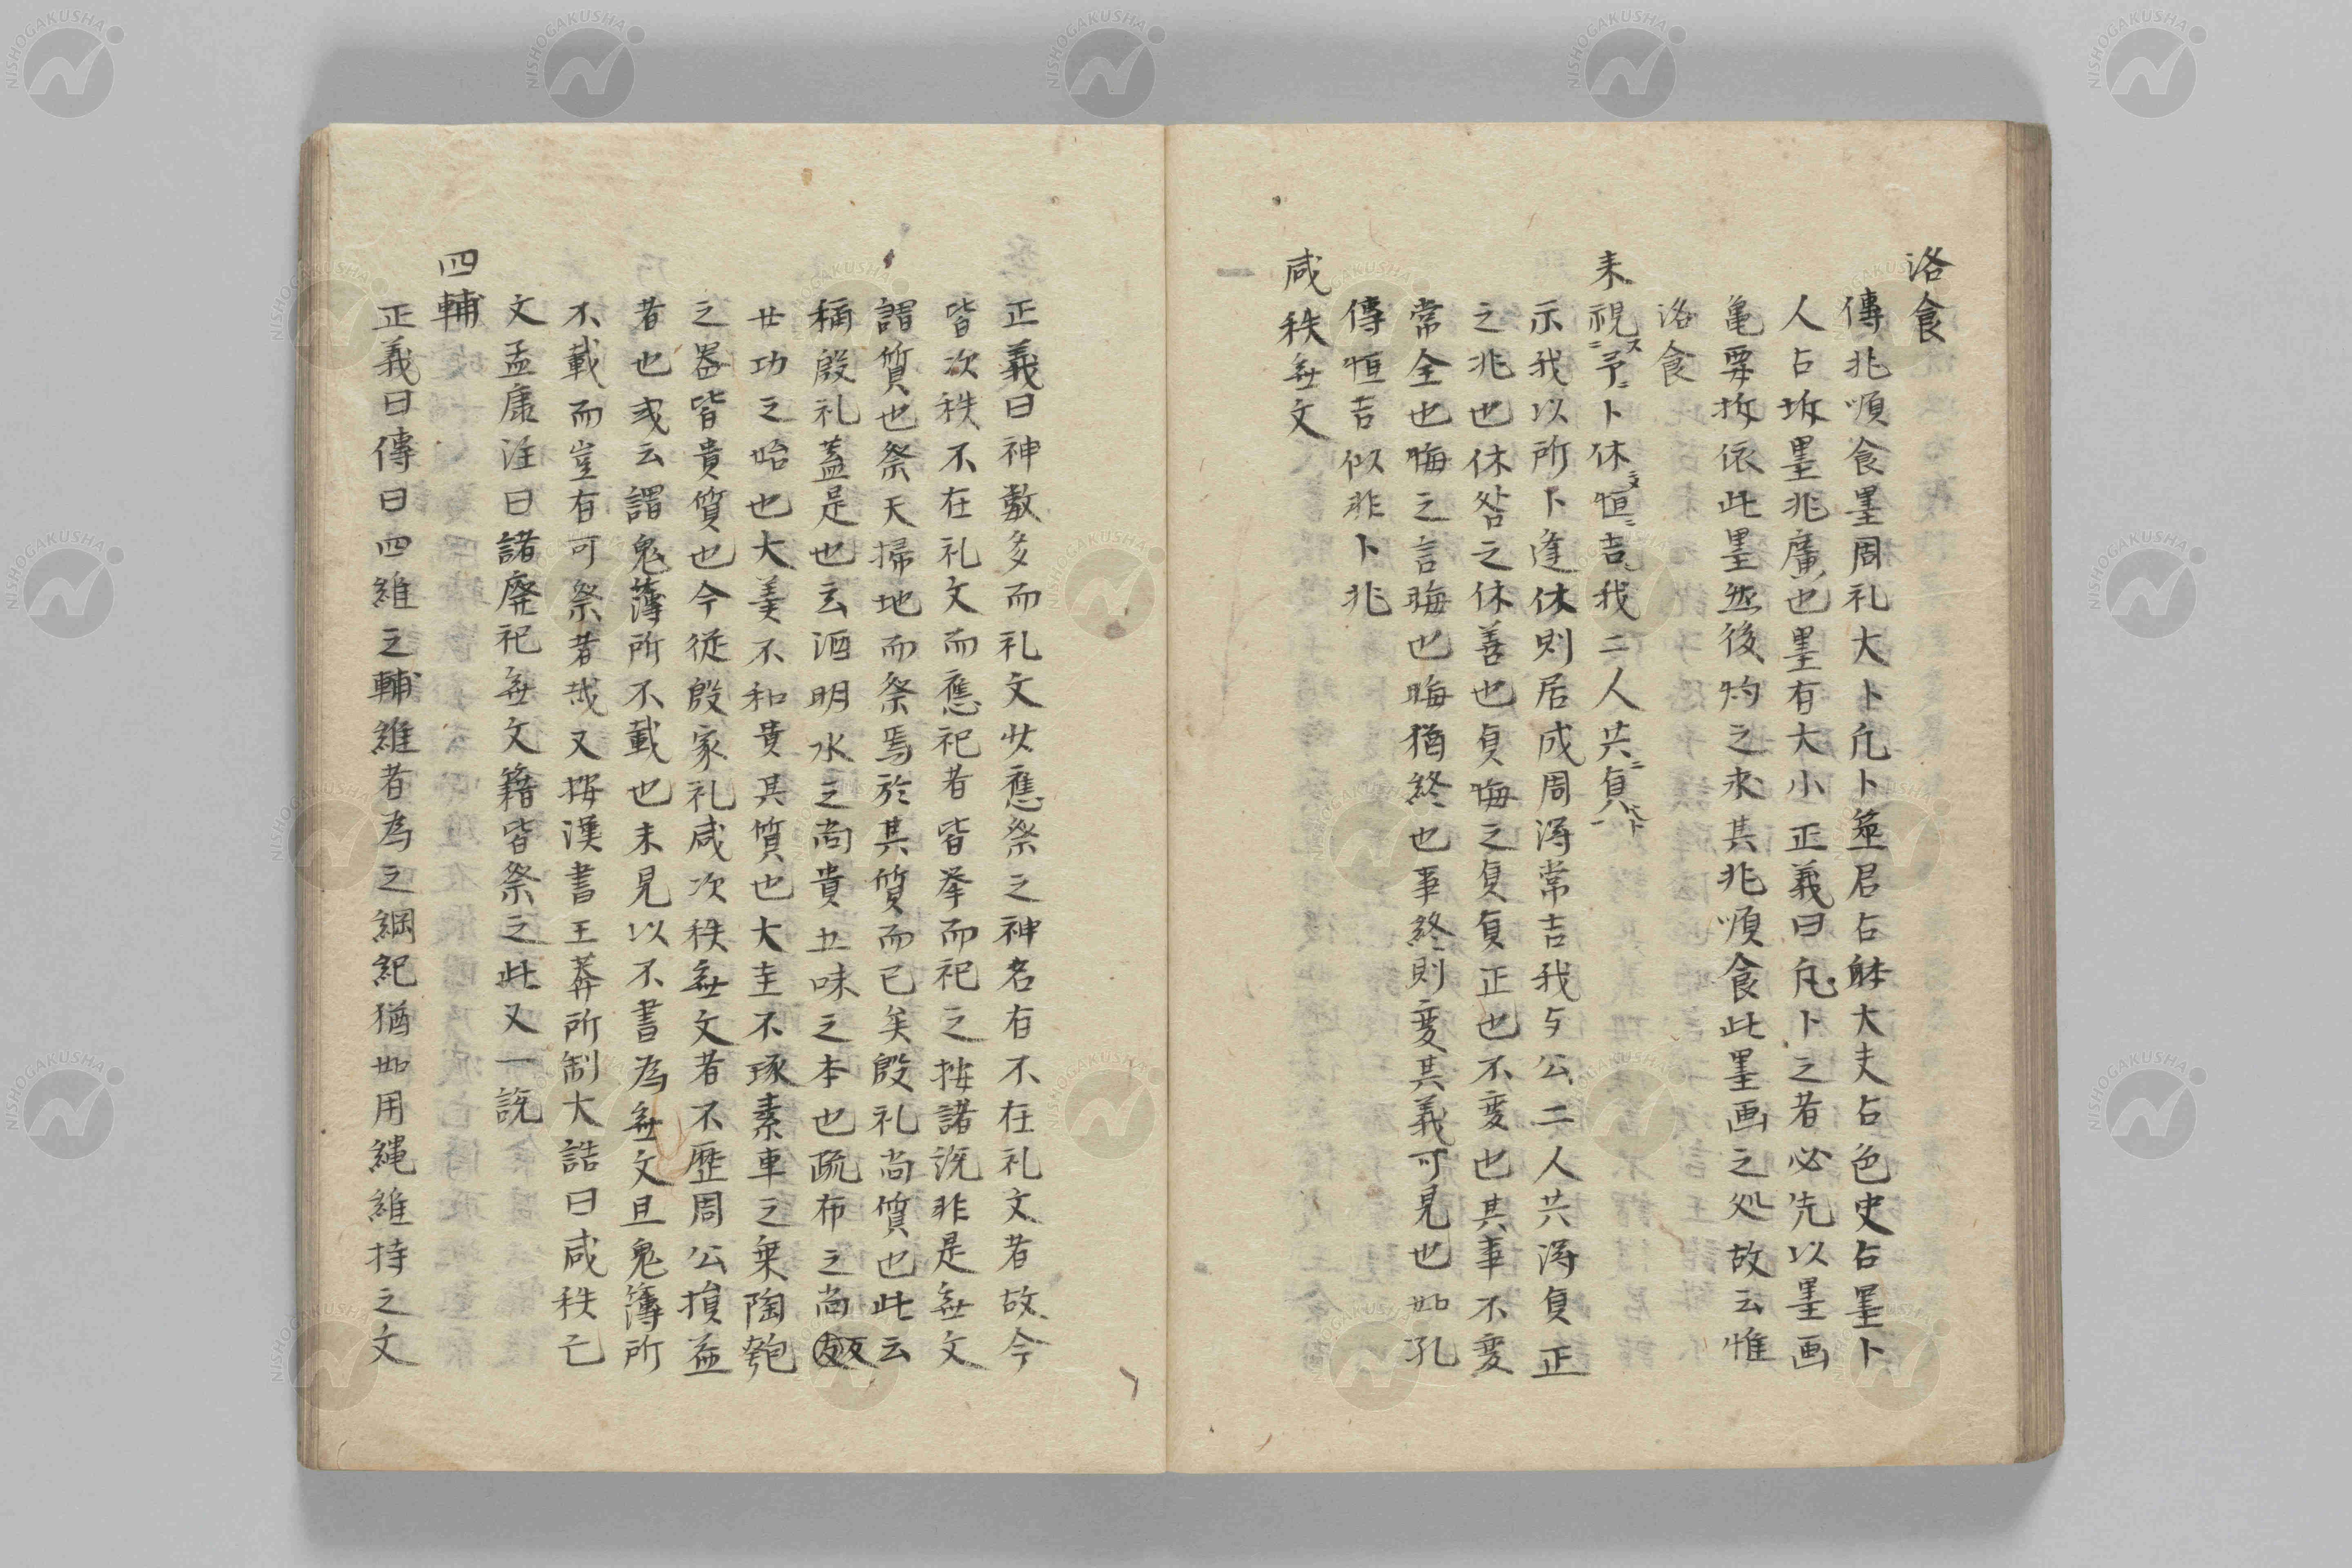 洛食
傳兆順食墨周礼大卜凡卜筮君占体大夫占色史占墨卜
人占坼墨兆廣也墨有大小正義曰凡卜之者必先以墨画
亀要坼依此墨然後灼之求其兆順食此墨画之処故云惟
洛食
来視予卜休恒吉我二人共貞
示我以所卜逢休則居成周淂常吉我与公二人共淂貞正
之兆也休咎之休善也貞悔之貞貞正也不変也其事不変
常全也悔之言晦也晦猶終也事終則変其義可見也如孔
傳恒吉似非卜兆
咸秩無文
正義曰神數多而礼文少應祭之神名有不在礼文者故今
皆次秩不在礼文而應祀者皆挙而祀之按諸説非是無文
謂質也祭天掃地而祭焉於其質而已矣殷礼尚質也此云
稱殷礼蓋是也玄酒明水之尚貴五味之本也疏布之尚反
女功之始也大羹不和貴其質也大圭不琢素車之乗陶匏
之器皆貴質也今従殷家礼咸次秩無文者不歴周公損益
者也或云謂鬼薄所不載也未見以不書為無文且鬼簿所
不載而豈有可祭者哉又按漢書王莽所制大誥曰咸秩亡
文孟康注曰諸廃祀無文籍皆祭之此又一説
四輔
正義曰傳曰四維之輔維者為之綱紀猶如用縄維持之文
NISHOGAKUSHA